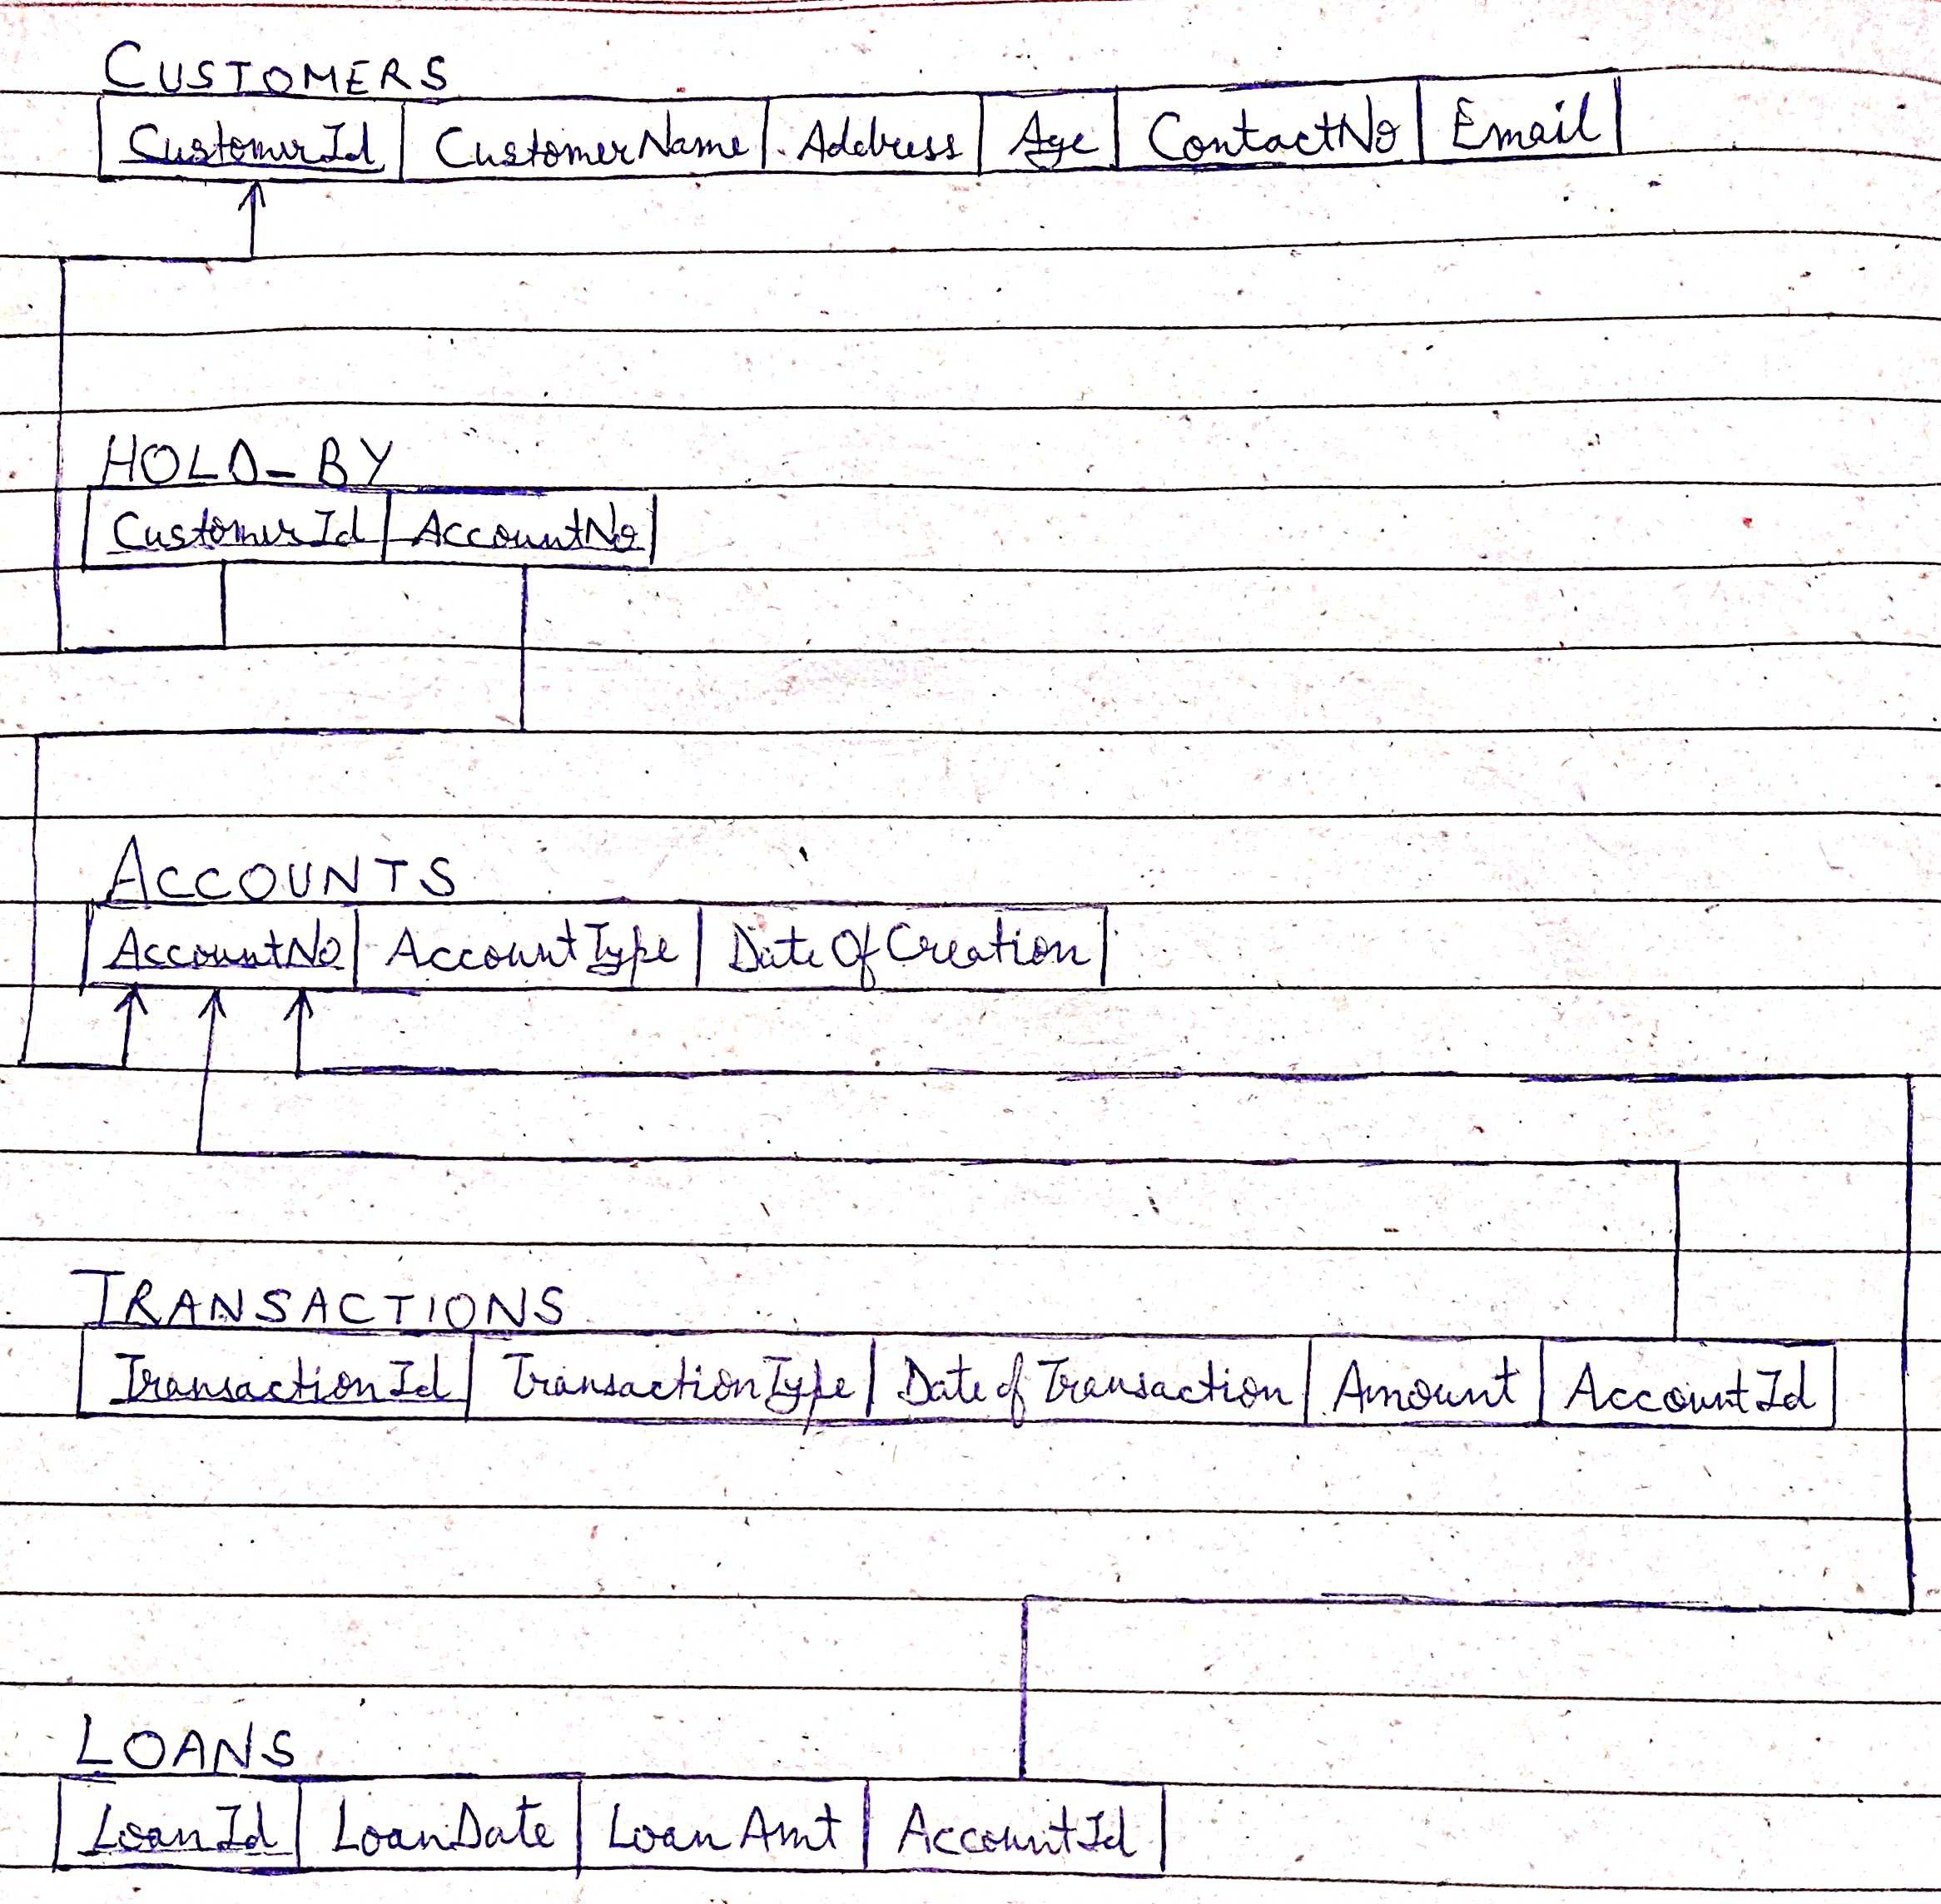 CUSTOMERS
CustomerId CustomerName Address Age ContactNo Email
HOLD-BY
CustomerId AccountNo
ACCOUNTS
AccountNo AccountType DateOfCreation
TRANSACTIONS
TransactionId TransactionType DateofTransaction Amount AccountId
LOANS
LoanId LoanDate LoanAmt AccountId